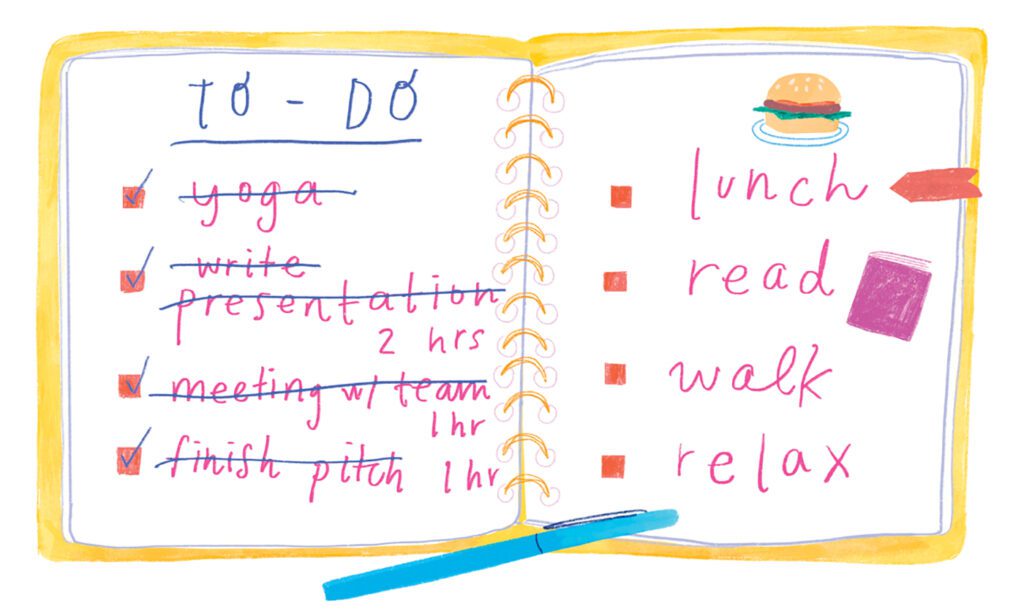 TO - DO
yoga
write
presentation
2 hrs
meeting w/ team
1 hr
finish pitch 1 hr
lunch
read
walk
relax